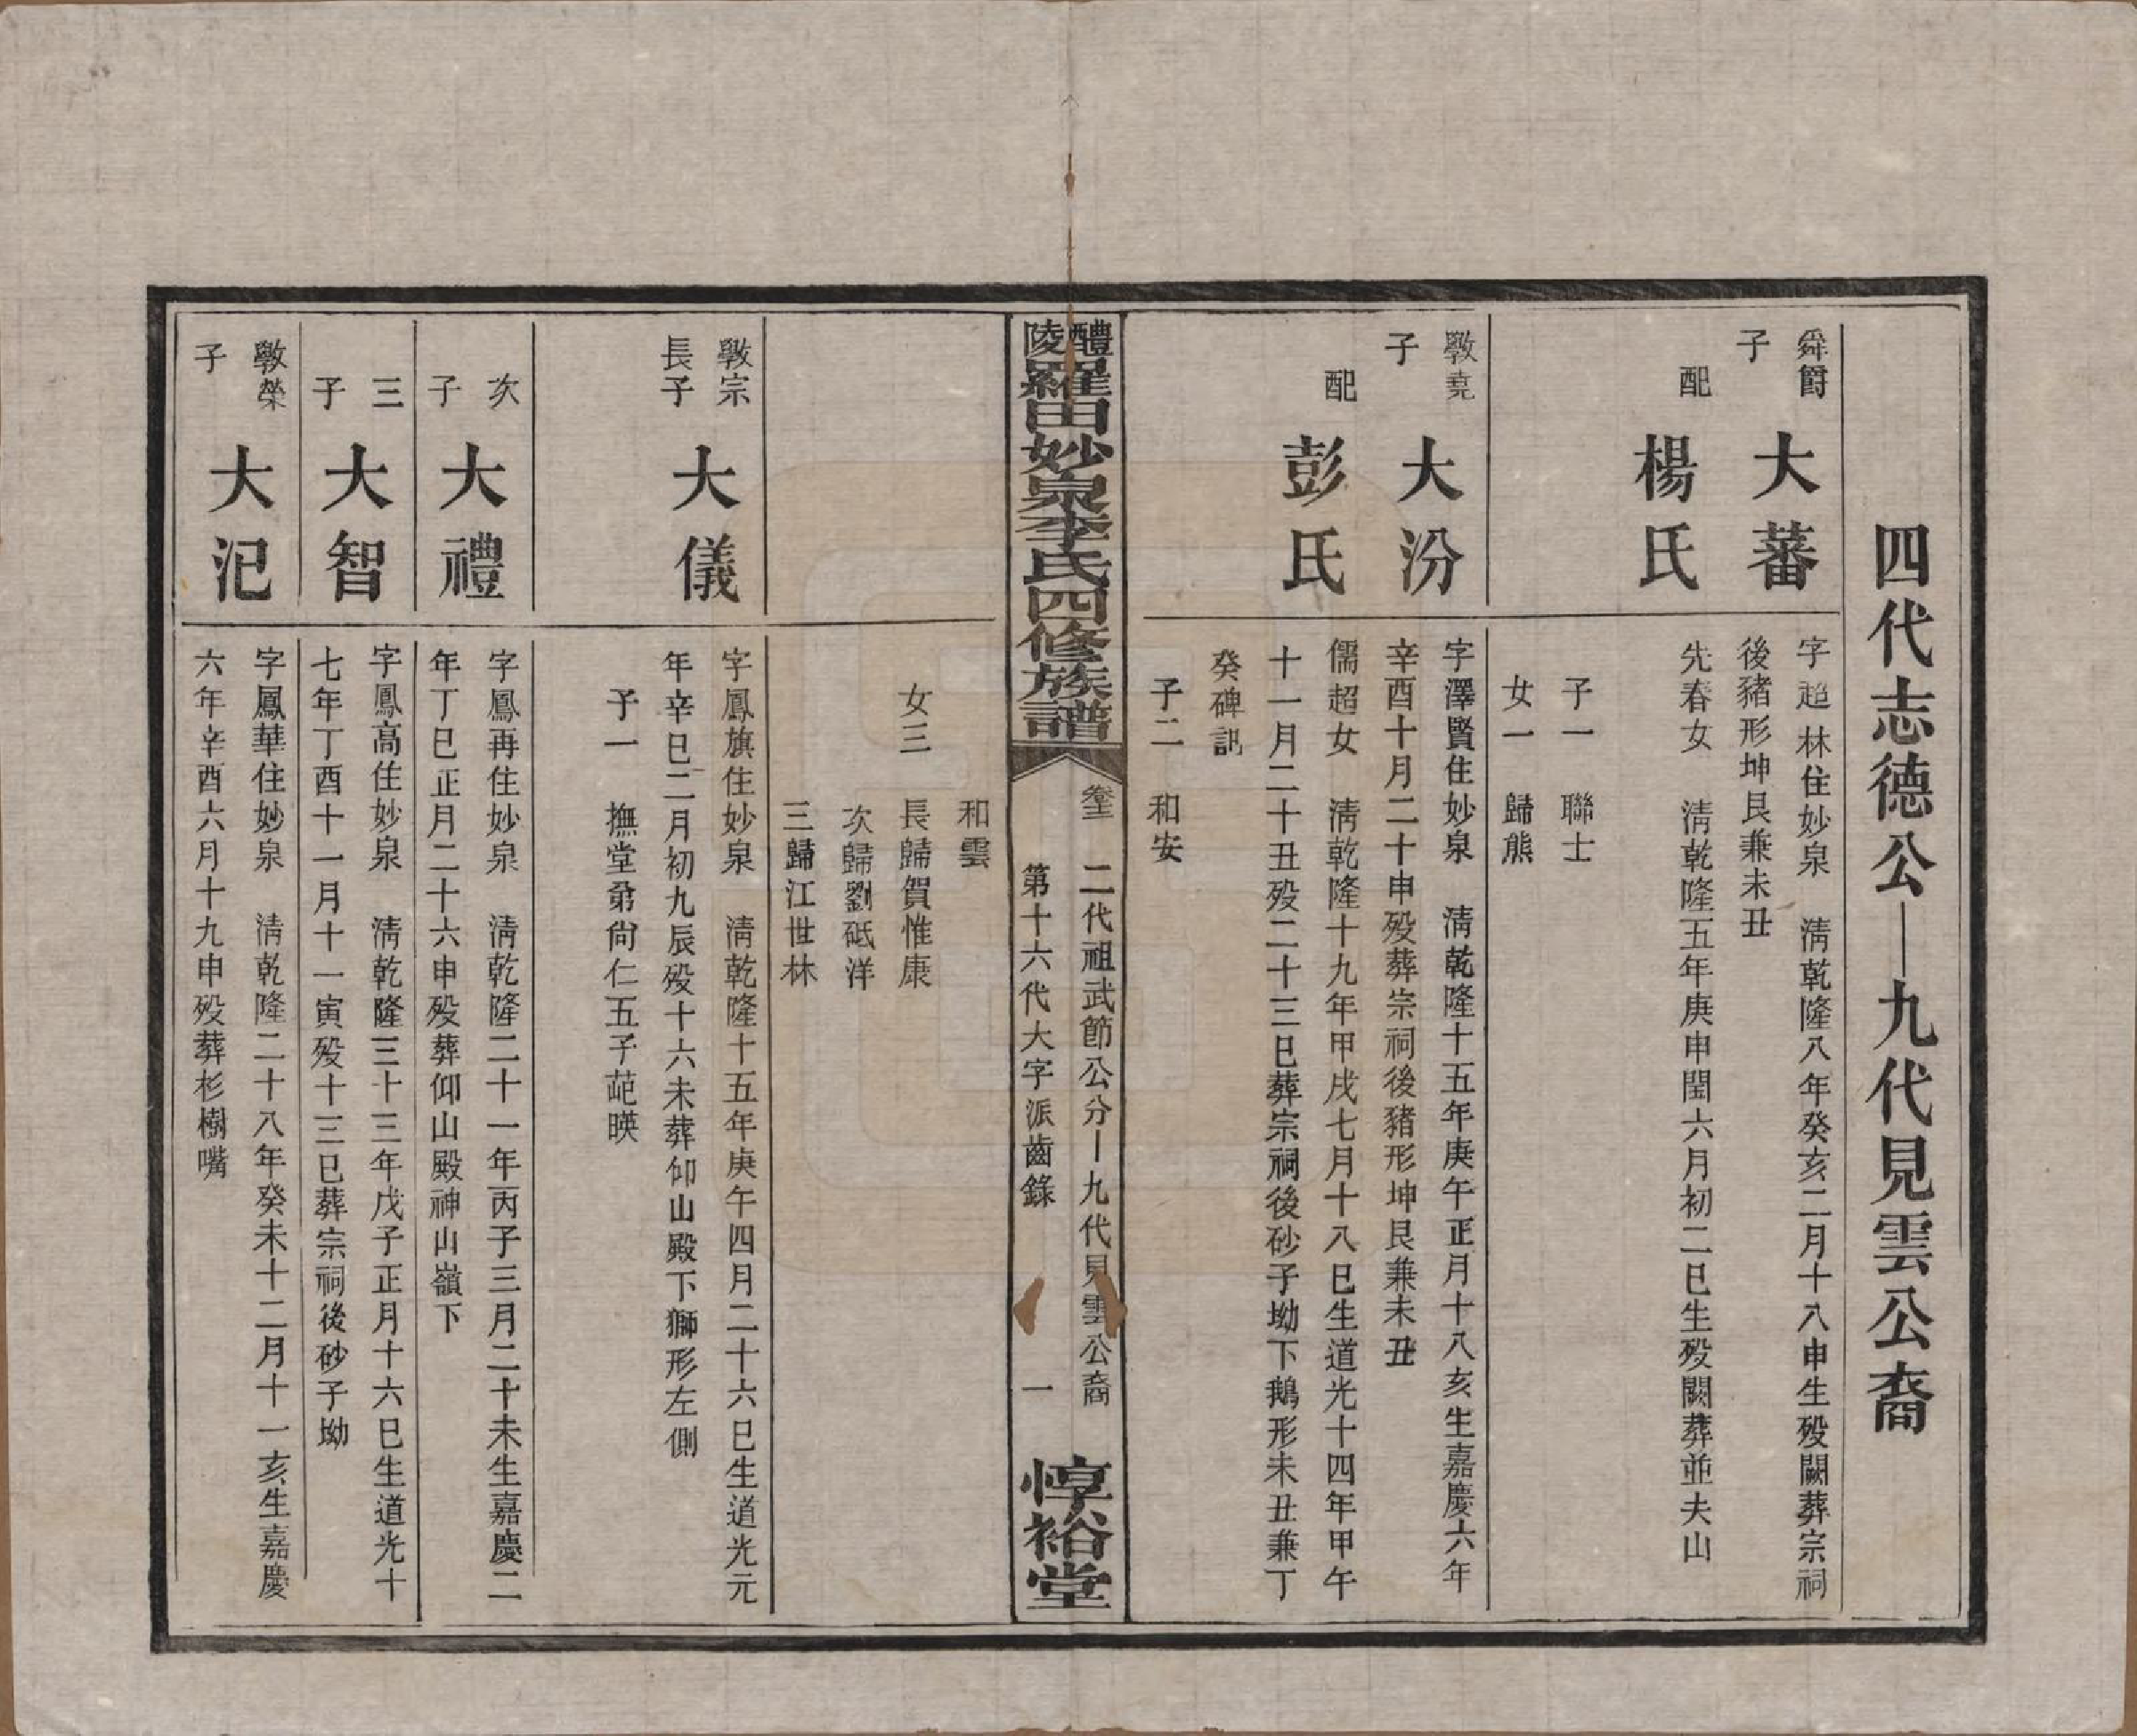 四代志德公—九代見雲公裔
舜爵子
大蕃
字超林住妙泉 淸乾隆八年癸亥二月十八申生殁闕葬宗祠
後豬形坤艮兼未丑
配
楊氏
先春女 淸乾隆五年庚申閏六月初二巳生殁闕葬並夫山
子一 聯士
女一 歸熊
斆堯子
大汾
字澤賢住妙泉 淸乾隆十五年庚午正月十八亥生嘉慶六年
辛酉十月二十申殁葬宗祠後豬形坤艮兼未丑
配
彭氏
儒超女 淸乾隆十九年甲戌七月十八巳生道光十四年甲午
十一月二十丑殁二十三巳葬宗祠後砂子坳下鵝形未丑兼丁
癸碑訊
子二 和安
醴陵羅田妙泉李氏四修族譜
二代祖武節公分—九代見雲公裔
第十六代大字派齒錄
一
惇裕堂
和雲
女三 長歸賀惟康
次歸劉砥洋
三歸江世林
斆宗長子
大儀
字鳳旗住妙泉 淸乾隆十五年庚午四月二十六巳生道光元
年辛巳二月初九辰殁十六未葬仰山殿下獅形左側
子一 撫堂弟尙仁五子葩暎
次子
大禮
字鳳再住妙泉 淸乾隆二十一年丙子三月二十未生嘉慶二
年丁巳正月二十六申殁葬仰山殿神山嶺下
三子
大智
字鳳高住妙泉 淸乾隆三十三年戊子正月十六巳生道光十
七年丁酉十一月十一寅殁十三巳葬宗祠後砂子坳
斆榮子
大汜
字鳳華住妙泉 淸乾隆二十八年癸未十二月十一亥生嘉慶
六年辛酉六月十九申殁葬杉樹嘴